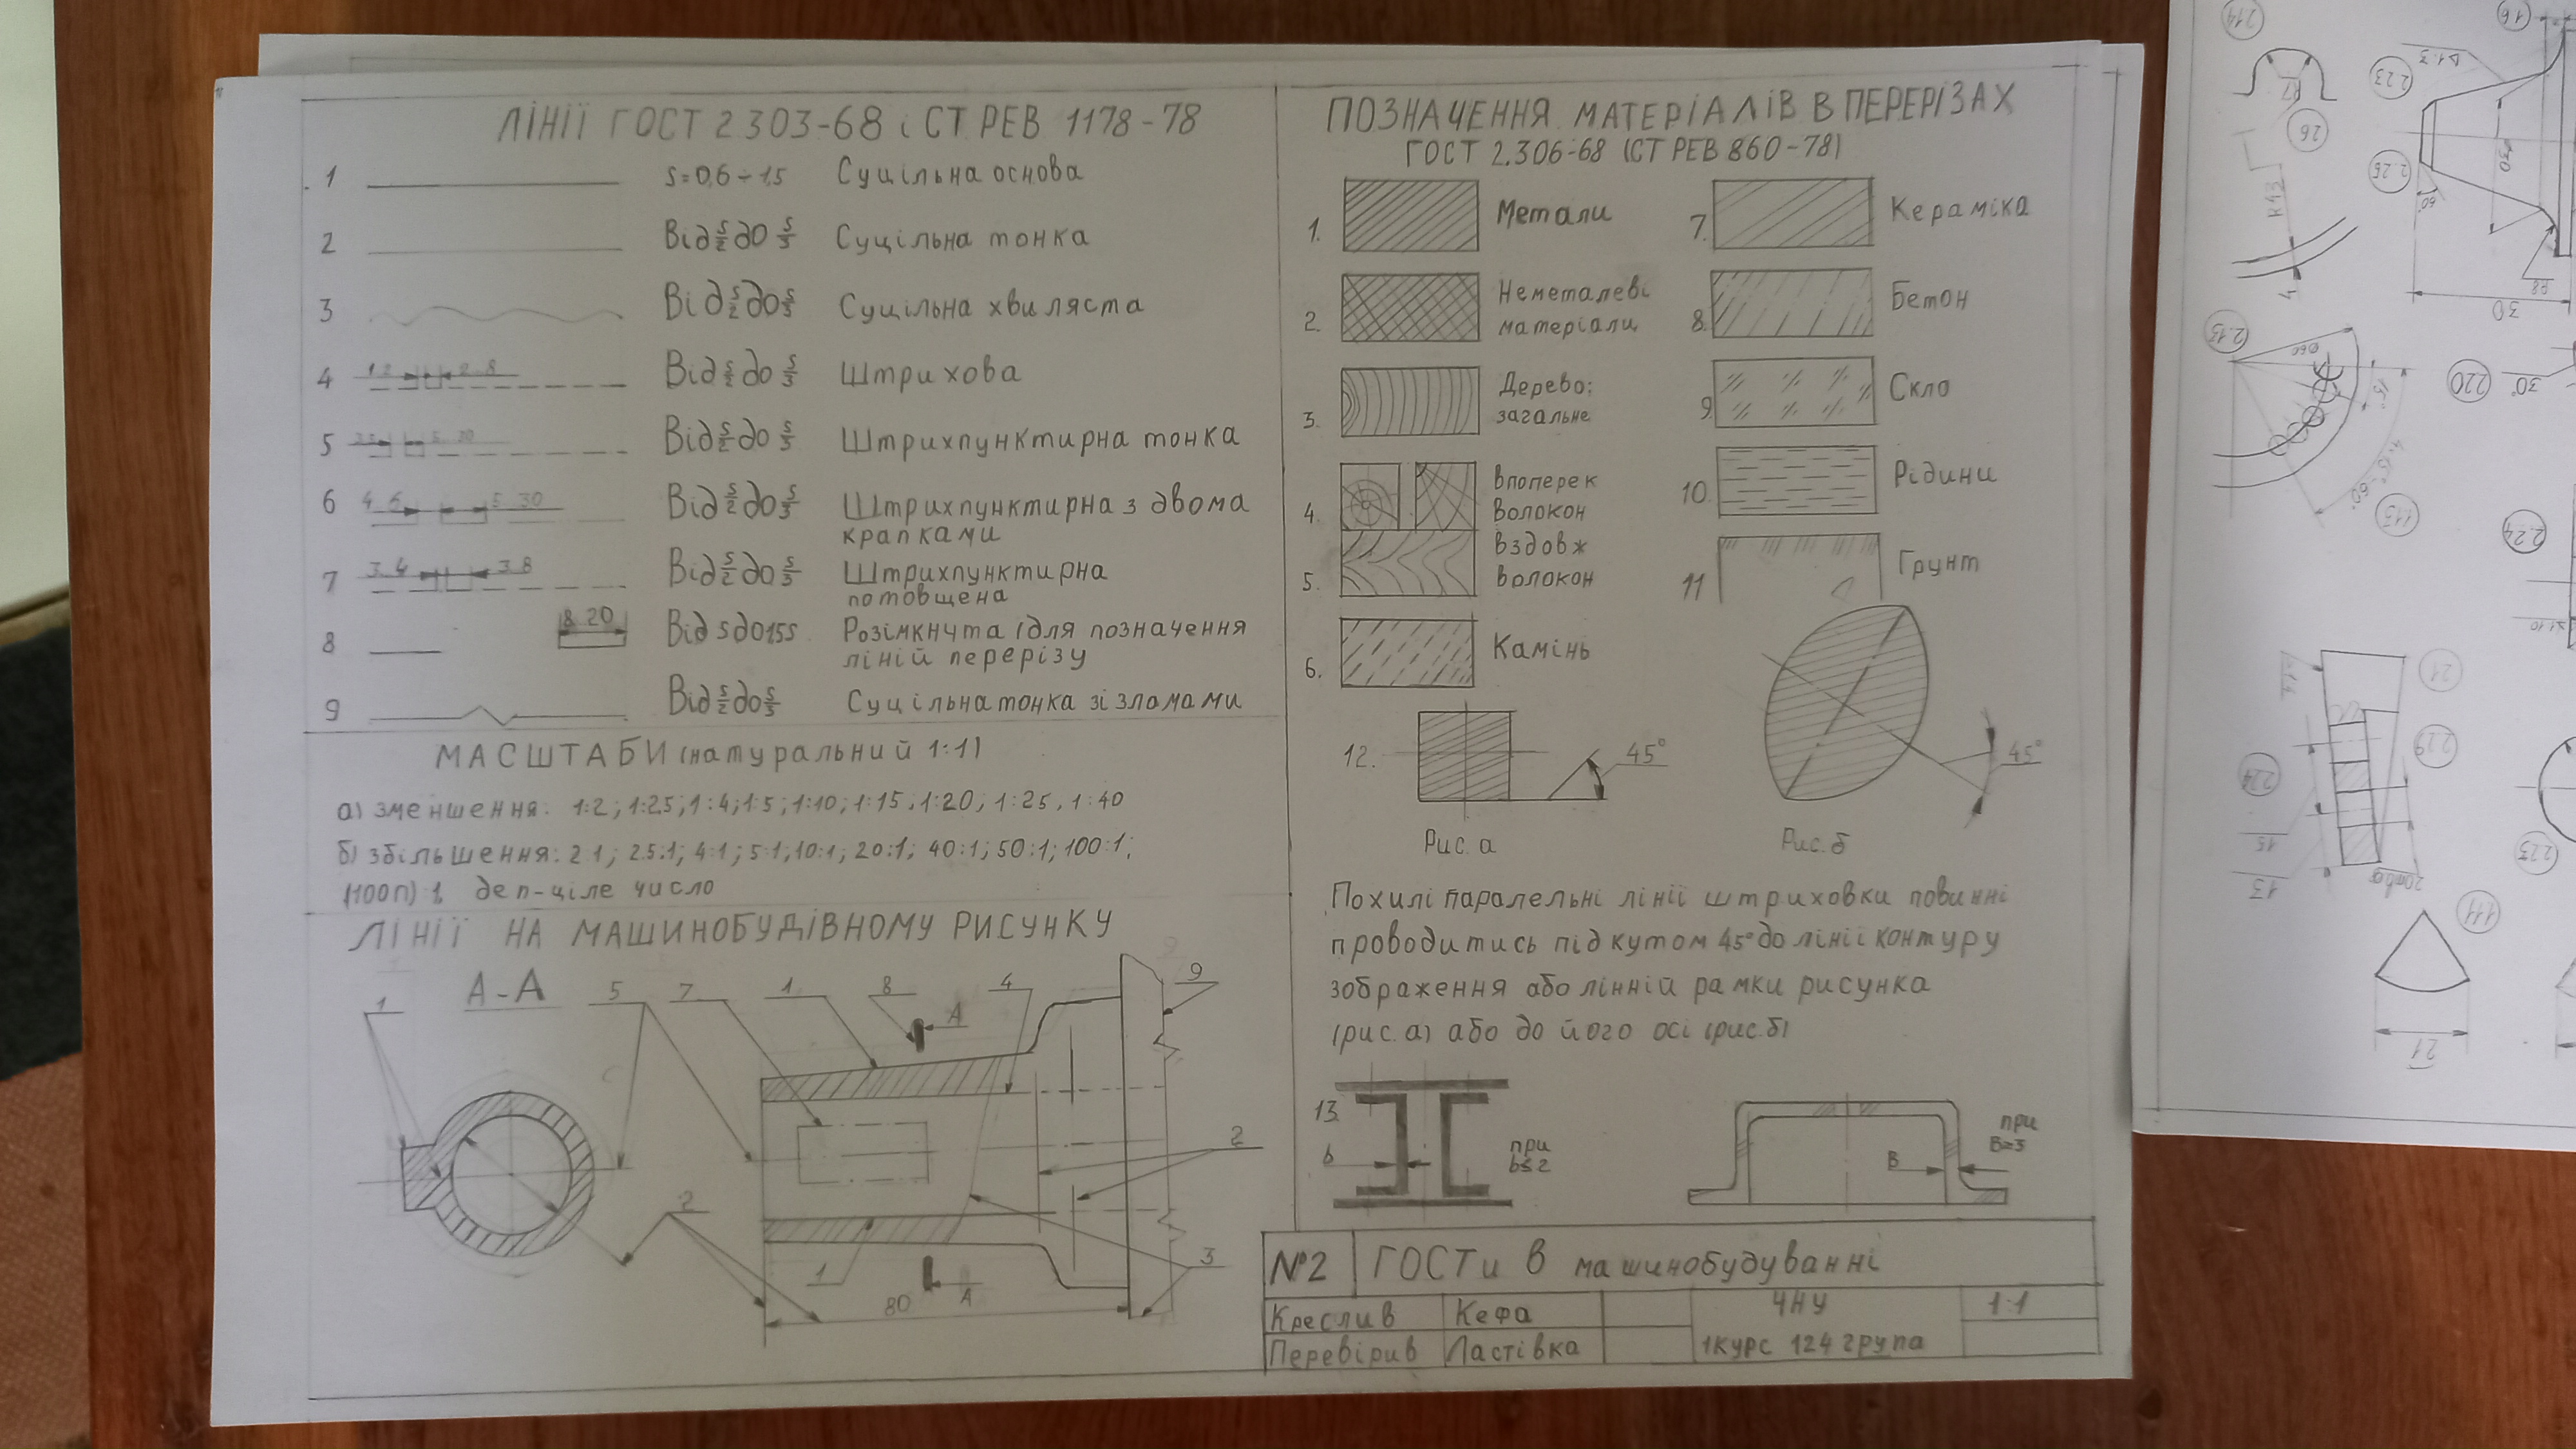 ЛІНІЇ ГОСТ 2.303-68 і СТ РЕВ 1178-78
1 s=0,6÷1,5 Суцільна основа
2 Від s/2 до s/3 Суцільна тонка
3 Від s/2 до s/3 Суцільна хвиляста
4 1 2 2..8 Від s/2 до s/3 Штрихова
5 5 30 Від s/2 до s/3 Штрихпунктирна тонка
6 4 6 5 30 Від s/2 до s/3 Штрихпунктирна з двома
крапками
7 3 4 3 8 Від s/2 до s/3 Штрихпунктирна
потовщена
8 8 20 Від s до 1,5s Розімкнута (для позначення
ліній перерізу
9 Від s/2 до s/3 Суцільна тонка зі зламами
МАСШТАБИ (натуральний 1:1)
а) зменшення: 1:2; 1:2,5; 1:4; 1:5; 1:10; 1:15, 1:20; 1:25, 1:40
б) збільшення: 2 1; 2.5:1; 4:1; 5:1, 10:1; 20:1; 40:1; 50:1; 100:1;
(100п) 1, де п-ціле число
ЛІНІЇ НА МАШИНОБУДІВНОМУ РИСУНКУ
А-А
1 5 7 1 8 А 4 9
2
2
3
1
А
80
ПОЗНАЧЕННЯ МАТЕРІАЛІВ В ПЕРЕРІЗАХ
ГОСТ 2.306-68 (СТ РЕВ 860-78)
1. Метали
2. Неметалеві
матеріали
3. Дерево;
загальне
4. впоперек
волокон
5. вздовж
волокон
6. Камінь
7. Кераміка
8. Бетон
9 Скло
10. Рідини
11 Грунт
12. 45° 45°
Рис. а Рис. б
Похилі паралельні лінії штриховки повинні
проводитись під кутом 45° до лінії контуру
зображення або лінній рамки рисунка
(рис. а) або до його осі (рис. б)
13. b при
b≤2
В при
В≥3
№2 ГОСТи в машинобудуванні
Креслив Кефа ЧНУ 1:1
Перевірив Ластівка 1курс 124 група
2.14
26
R7
2.23
2.26
16
Ø30
60°
R8
30
4
2.13
Ø60
15°
1.13
220
30°
2.24
21
2.29
224
15
13
223
1.11
21